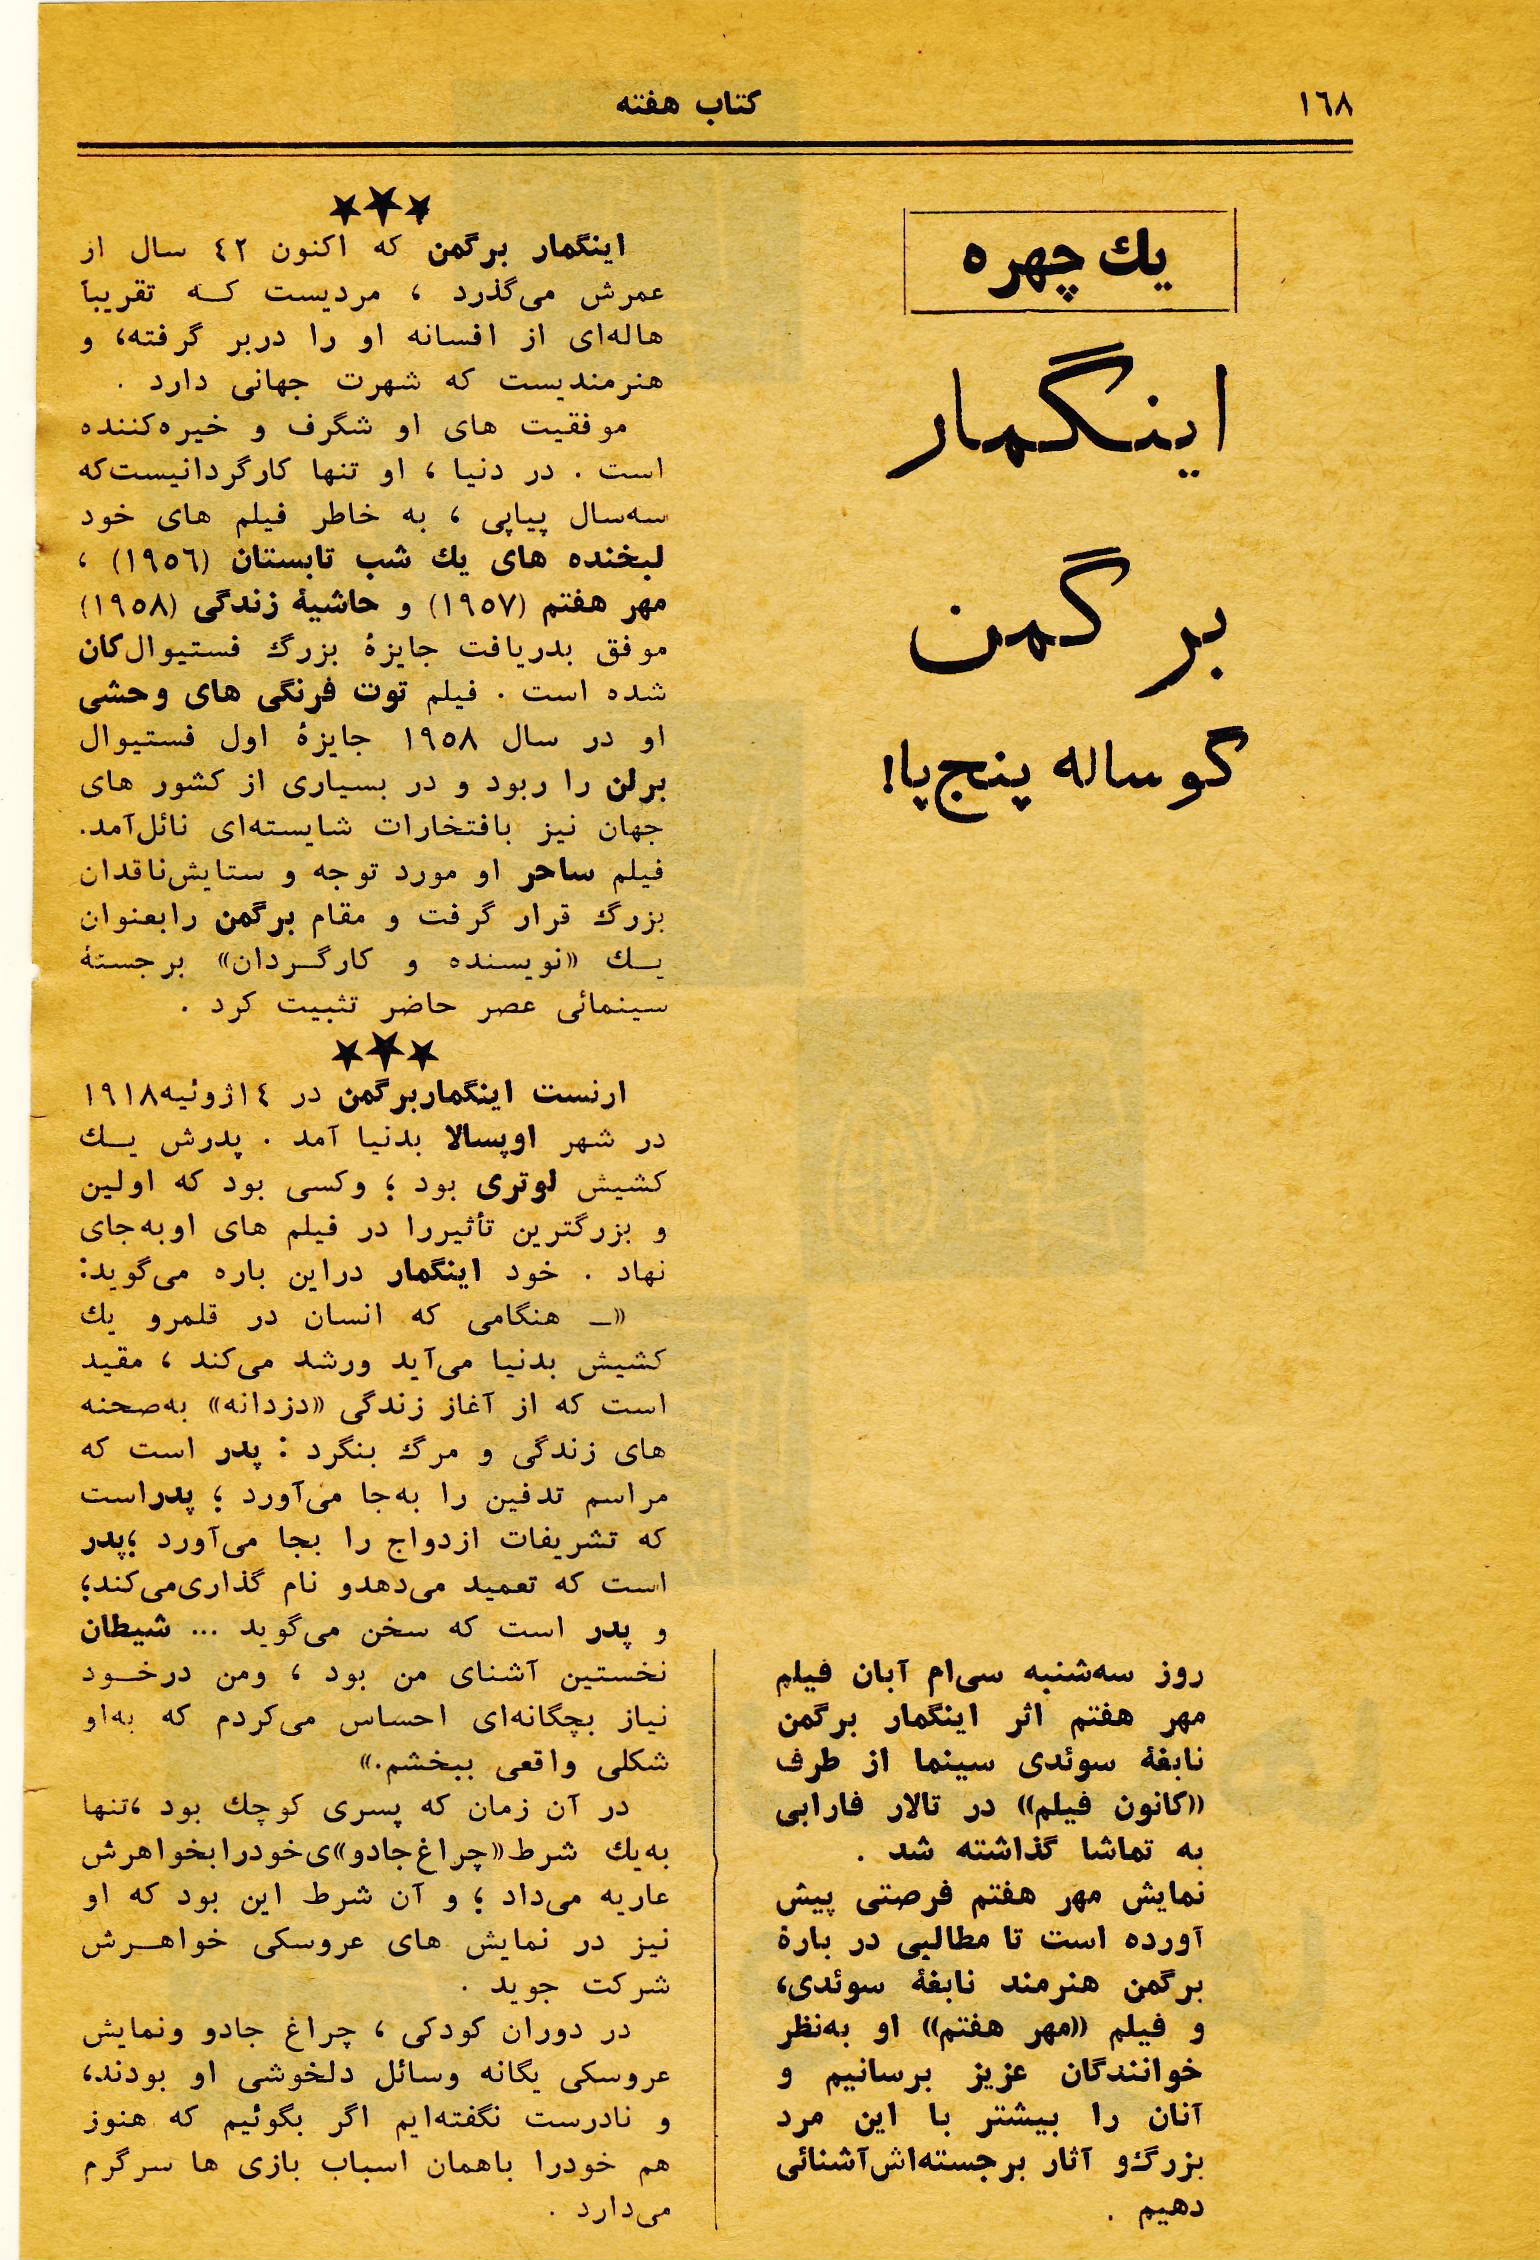 ۱۶۸
کتاب هفته
یك چهره
اینگمار
برگمن
گوساله پنج‌پا!
روز سه‌شنبه سی‌ام آبان فیلم
مهر هفتم اثر اینگمار برگمن
نابغهٔ سوئدی سینما از طرف
«کانون فیلم» در تالار فارابی
به تماشا گذاشته شد .
نمایش مهر هفتم فرصتی پیش
آورده است تا مطالبی در بارهٔ
برگمن هنرمند نابغهٔ سوئدی،
و فیلم «مهر هفتم» او به‌نظر
خوانندگان عزیز برسانیم و
آنان را بیشتر با این مرد
بزرگ‌و آثار برجسته‌اش‌آشنائی
دهیم .
★★★
اینگمار برگمن که اکنون ٤٢ سال از
عمرش می‌گذرد ، مردیست کـه تقریباً
هاله‌ای از افسانه او را دربر گرفته، و
هنرمندیست که شهرت جهانی دارد .
موفقیت های او شگرف و خیره‌کننده
است . در دنیا ، او تنها کارگردانیست‌که
سه‌سال پیاپی ، به خاطر فیلم های خود
لبخنده های یك شب تابستان (۱۹٥٦) ،
مهر هفتم (۱۹٥٧) و حاشیهٔ زندگی (۱۹٥٨)
موفق بدریافت جایزهٔ بزرگ فستیوال‌کان
شده است . فیلم توت فرنگی های وحشی
او در سال ۱۹٥٨ جایزهٔ اول فستیوال
برلن را ربود و در بسیاری از کشور های
جهان نیز بافتخارات شایسته‌ای نائل‌آمد.
فیلم ساحر او مورد توجه و ستایش‌ناقدان
بزرگ قرار گرفت و مقام برگمن رابعنوان
یـك «نویسنده و کارگـردان» برجستهٔ
سینمائی عصر حاضر تثبیت کرد .
★★★
ارنست اینگماربرگمن در ۱٤ژوئیه۱۹۱۸
در شهر اوپسالا بدنیا آمد . پدرش یـك
کشیش لوتری بود ؛ وکسی بود که اولین
و بزرگترین تأثیررا در فیلم های اوبه‌جای
نهاد . خود اینگمار دراین باره می‌گوید:
«ــ هنگامی که انسان در قلمرو یك
کشیش بدنیا می‌آید ورشد می‌کند ، مقید
است که از آغاز زندگی «دزدانه» به‌صحنه
های زندگی و مرگ بنگرد : پدر است که
مراسم تدفین را به‌جا می‌آورد ؛ پدراست
که تشریفات ازدواج را بجا می‌آورد ؛پدر
است که تعمید می‌دهدو نام گذاری‌می‌کند؛
و پدر است که سخن می‌گوید ... شیطان
نخستین آشنای من بود ، ومن درخـود
نیاز بچگانه‌ای احساس می‌کردم که به‌او
شکلی واقعی ببخشم.»
در آن زمان که پسری کوچك بود ،تنها
به‌یك شرط«چراغ‌جادو»ی‌خودرابخواهرش
عاریه می‌داد ؛ و آن شرط این بود که او
نیز در نمایش های عروسکی خواهـرش
شرکت جوید .
در دوران کودکی ، چراغ جادو ونمایش
عروسکی یگانه وسائل دلخوشی او بودند،
و نادرست نگفته‌ایم اگر بگوئیم که هنوز
هم خودرا باهمان اسباب بازی ها سرگرم
می‌دارد .